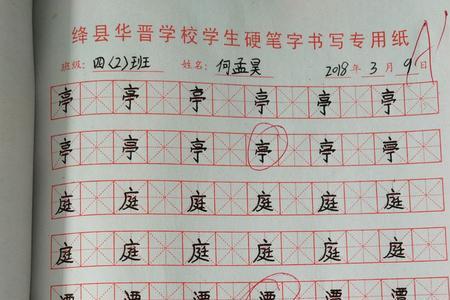 绛县华晋学校学生硬笔字书写专用纸
班级: 四(2)班 姓名: 何孟昊 2018年3月9日
亭 亭 亭 亭 亭 亭
亭 亭 亭 亭 亭 亭
庭 庭 庭 庭 庭 庭
庭 庭 庭 庭 庭 庭
潭 潭 潭 潭 潭 潭